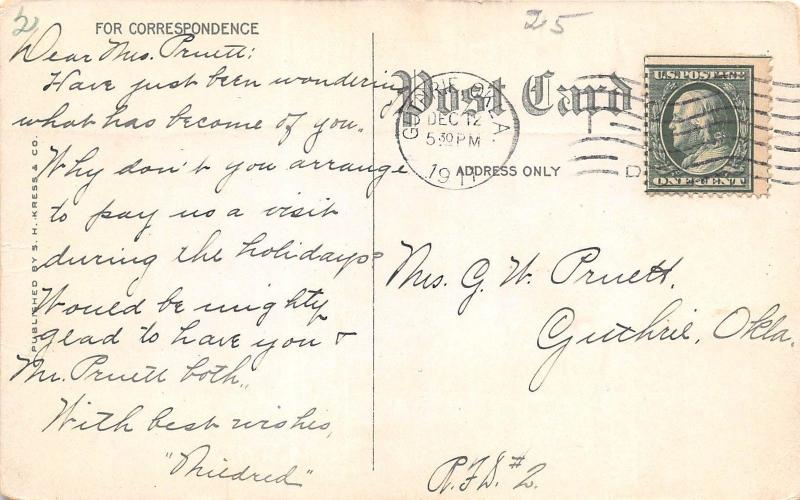 2
25
FOR CORRESPONDENCE
Dear Mrs. Pruett:
Have just been wondering
what has become of you.
Why don't you arrange
to pay us a visit
during the holidays?
Would be mighty
glad to have you &
Mr. Pruett both.
With best wishes,
"Mildred"
PUBLISHED BY S. H. KRESS & CO.
Post Card
GUTHRIE, OKLA.
DEC 12
5 30 PM
1911
ADDRESS ONLY
D
U.S. POSTAGE
ONE CENT
Mrs. G. W. Pruett,
Guthrie, Okla.
R.F.D. #2.